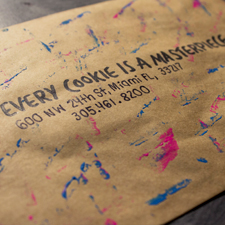 EVERY COOKIE IS A MASTERPIECE
600 NW 24th St, Miami FL, 33127
305.461.8200